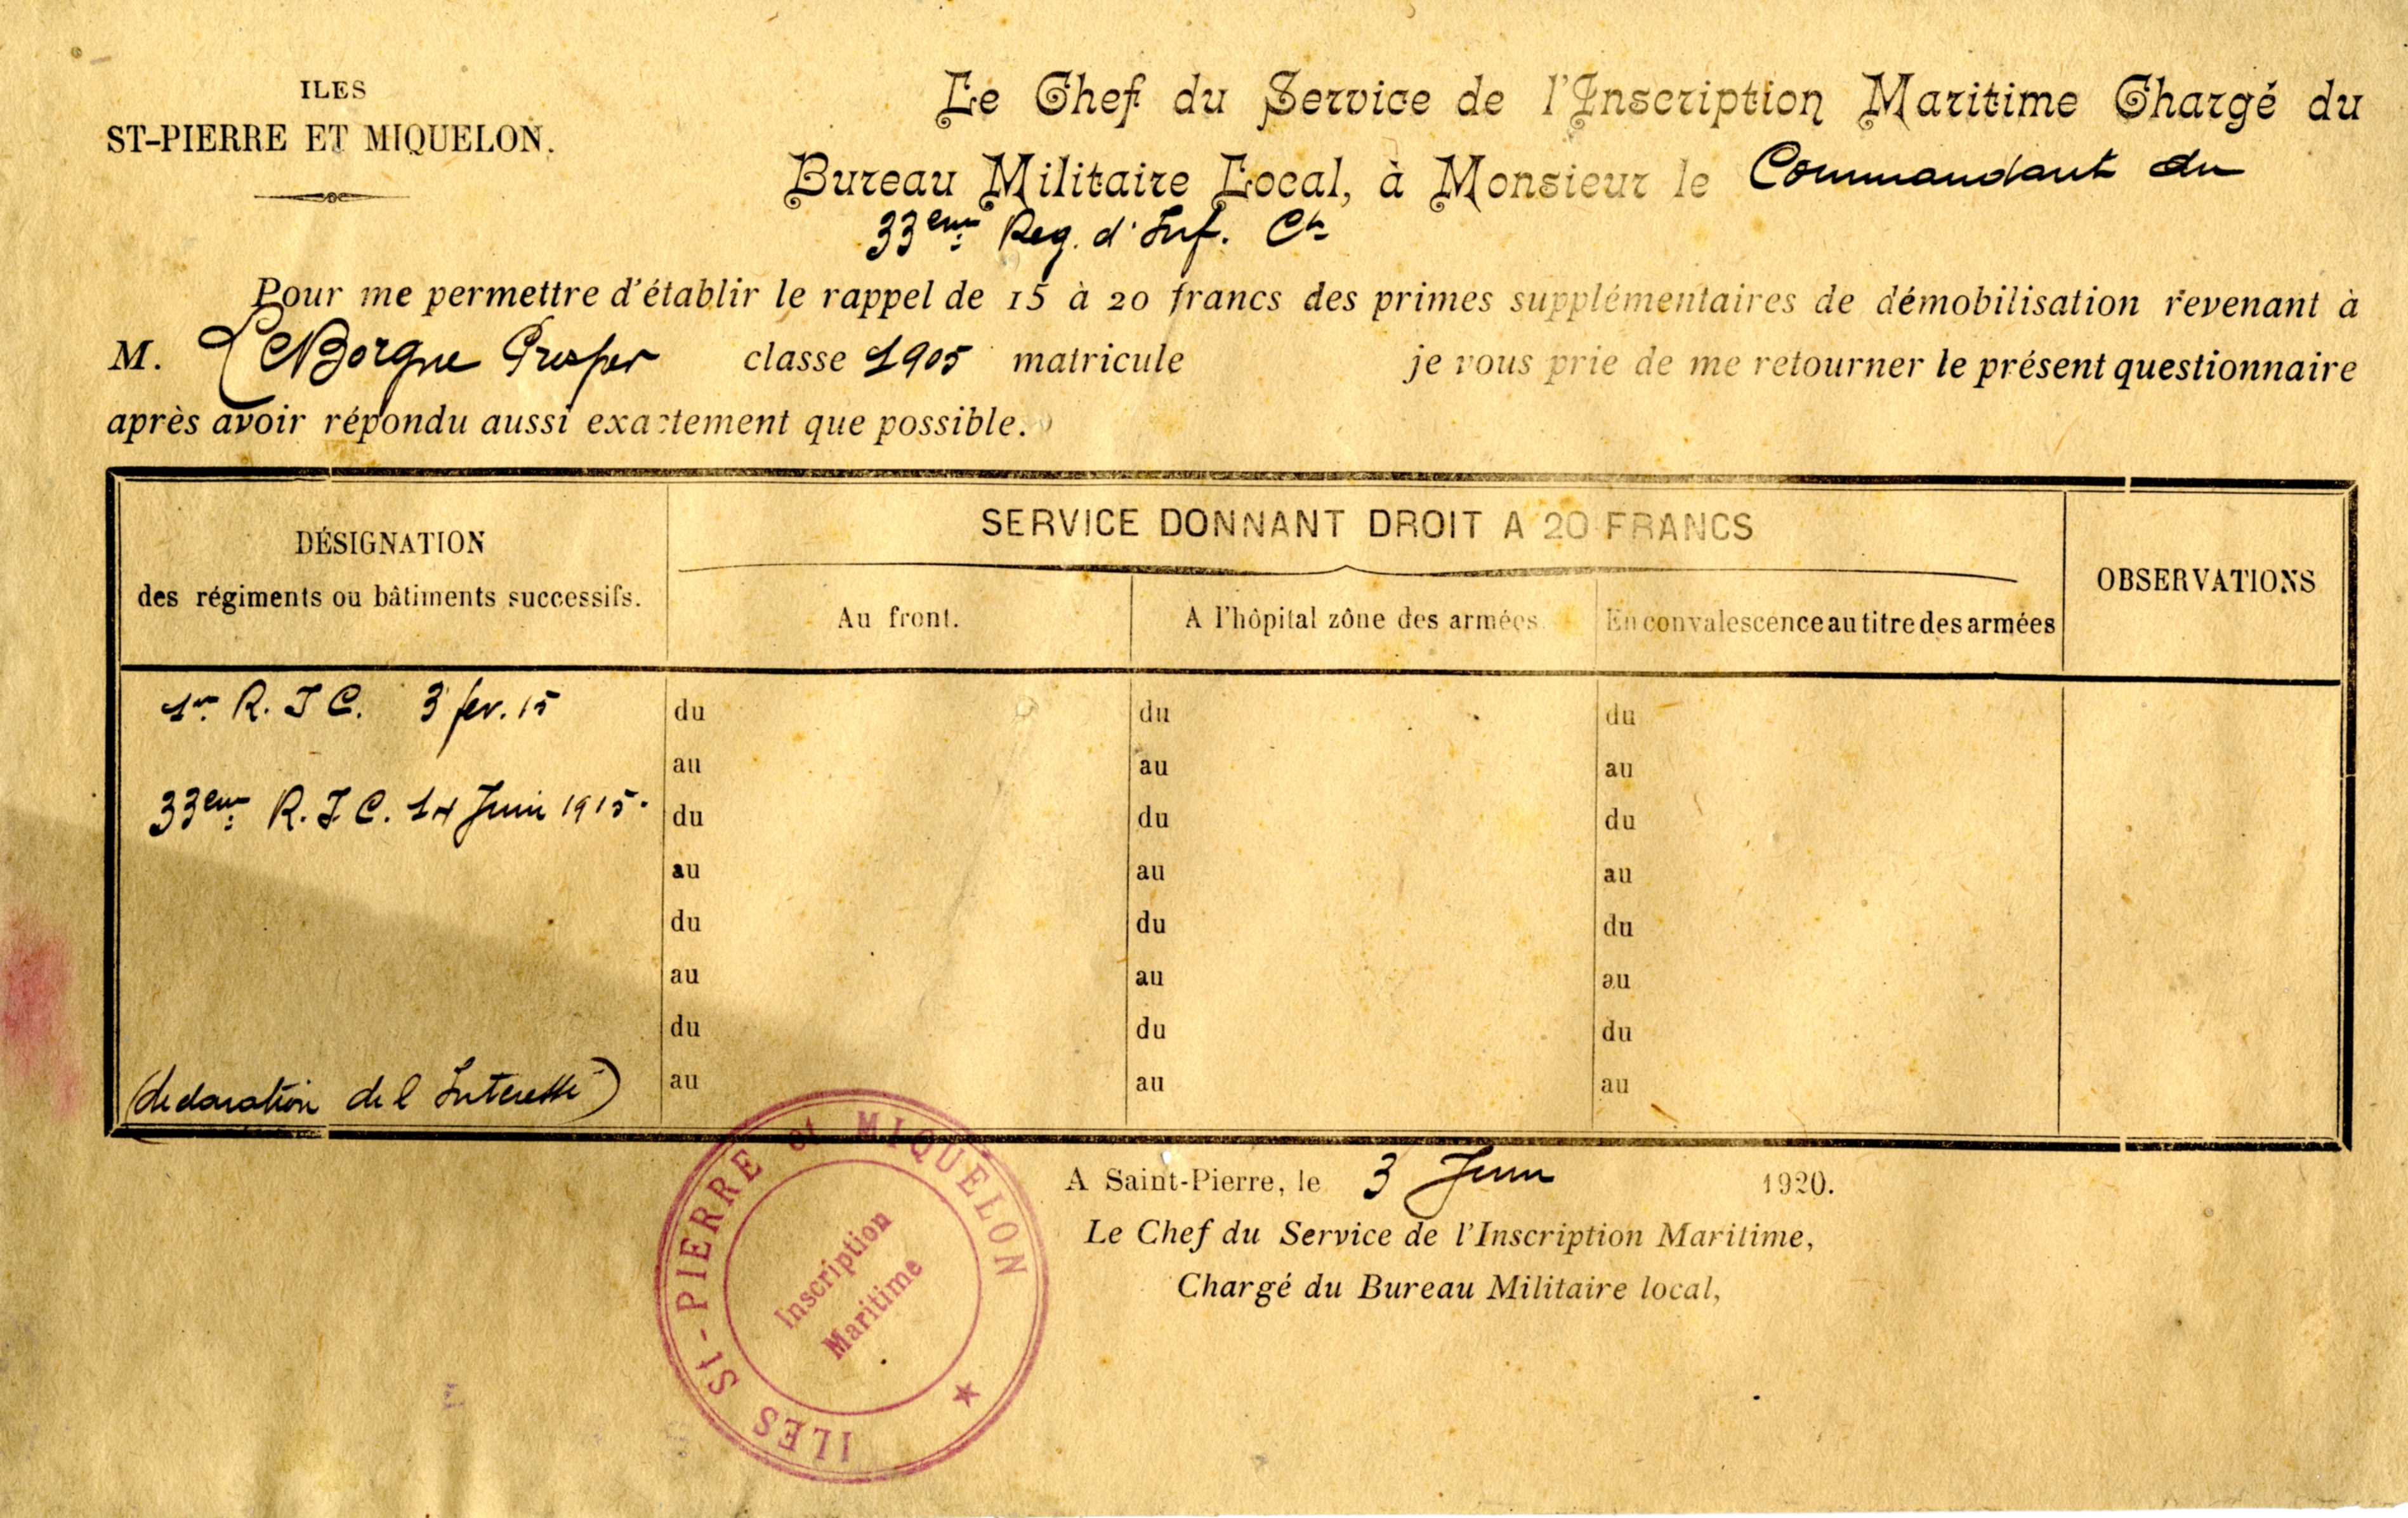 ILES
ST-PIERRE ET MIQUELON.
Le Chef du Service de l'Inscription Maritime Chargé du
Bureau Militaire Local, à Monsieur le Commandant du
33eme Reg. d'Inf. Cle
Pour me permettre d'établir le rappel de 15 à 20 francs des primes supplémentaires de démobilisation revenant à
M. Le Borgne Prosper classe 1905 matricule je vous prie de me retourner le présent questionnaire
après avoir répondu aussi exactement que possible.
DÉSIGNATION
des régiments ou bâtiments successifs.
SERVICE DONNANT DROIT A 20 FRANCS
Au front.
A l'hôpital zône des armées.
En convalescence au titre des armées
OBSERVATIONS
1er R. I C. 3 fev. 15
du du du
au au au
33eme R. I C. 14 Juin 1915.
du du du
au au au
du du du
au au au
du du du
(declaration de l Interessé)
au au au
A Saint-Pierre, le 3 Juin 1920.
Le Chef du Service de l'Inscription Maritime,
Chargé du Bureau Militaire local,
ILES St-PIERRE et MIQUELON
Inscription
Maritime